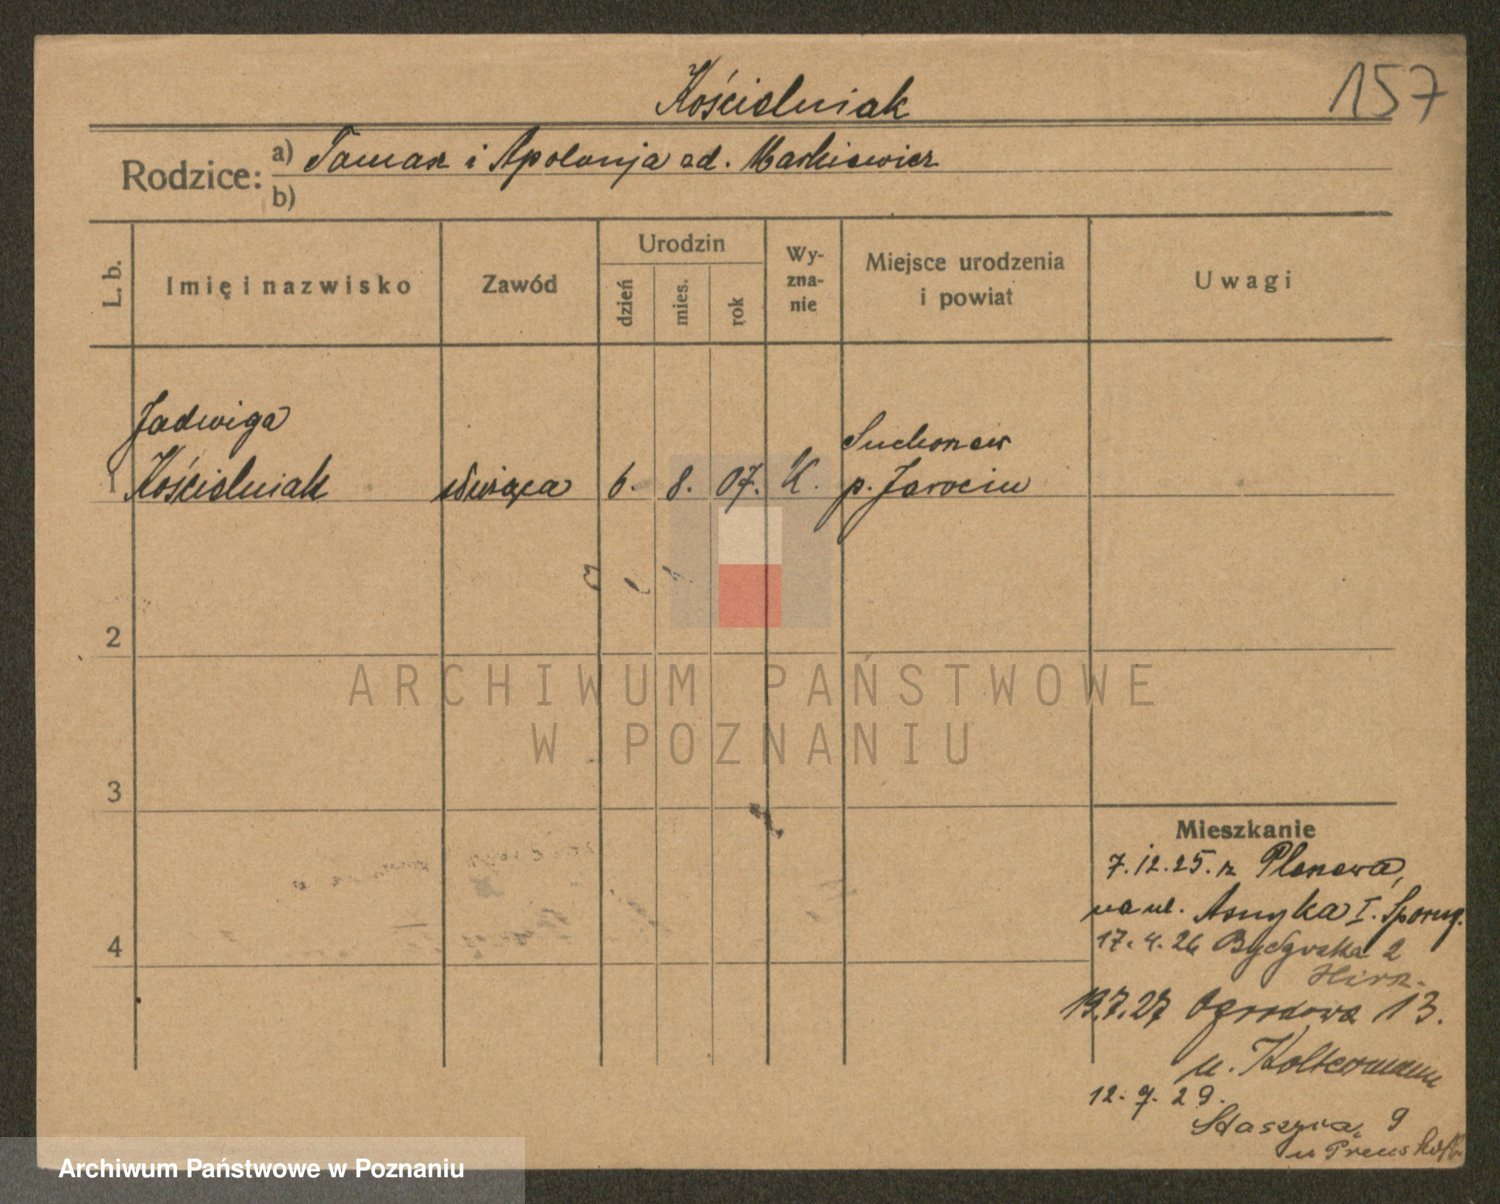 157
Kościelniak
Rodzice:
a) Tomasz i Apolonja zd. Markiewicz
b)
L. b.
Imię i nazwisko
Zawód
Urodzin
dzień
mies.
rok
Wy-
zna-
nie
Miejsce urodzenia
i powiat
Uwagi
Jadwiga
1 Kościelniak służąca 6. 8. 07. K.
Suchorzew
p. Jarocin
2
ARCHIWUM PAŃSTWOWE
W POZNANIU
3
4
Mieszkanie
7.12.25. z Plonowa,
na ul. Asnyka I.
17.4.26 Bydgoska 2
Hirz.
19.7.27 Ogrodowa 13.
u. Koltermann
12.9.29.
Staszyca 9
u
Archiwum Państwowe w Poznaniu